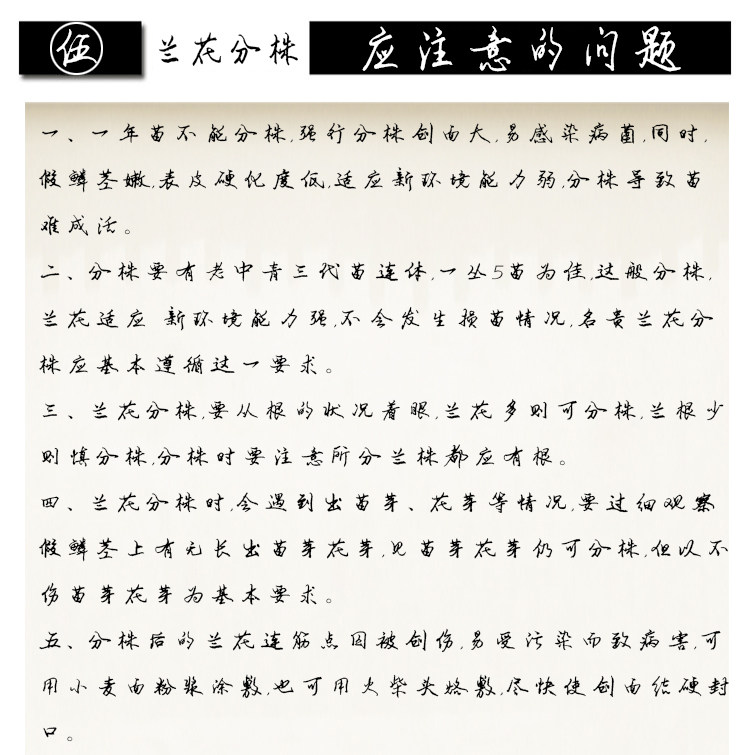 伍 兰花分株 应注意的问题
一、一年苗不能分株,强行分株创面大,易感染病菌,同时,
假鳞茎嫩,表皮硬化度低,适应新环境能力弱,分株导致苗
难成活。
二、分株要有老中青三代苗连体,一丛5苗为佳,这般分株,
兰花适应 新环境能力强,不会发生损苗情况,名贵兰花分
株应基本遵循这一要求。
三、兰花分株,要从根的状况着眼,兰花多则可分株,兰根少
则慎分株,分株时要注意所分兰株都应有根。
四、兰花分株时,会遇到出苗芽、花芽等情况,要过细观察
假鳞茎上有无长出苗芽花芽,见苗芽花芽仍可分株,但以不
伤苗芽花芽为基本要求。
五、分株后的兰花连筋点因被创伤,易受污染而致病害,可
用小麦面粉浆涂敷,也可用火柴头烙敷,尽快使创面结硬封
口。